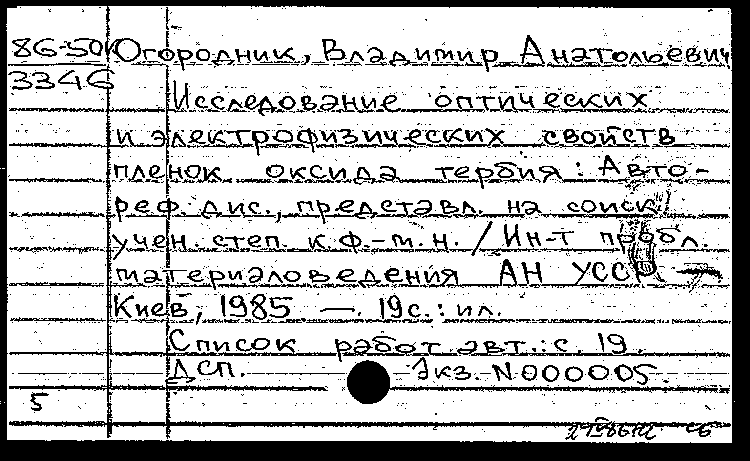 86-50к Огородник, Владимир Анатольевич
3346
Исследование оптических
и электрофизических свойств
пленок оксида тербия: Авто-
реф. дис., представл. на соиск.
учен. степ. к.ф.-м.н. / Ин-т пробл.
материаловедения АН УССР. —
Киев, 1985. — 19с.: ил.
Список работ авт.: с. 19.
ДСП. Экз. N000005.
5